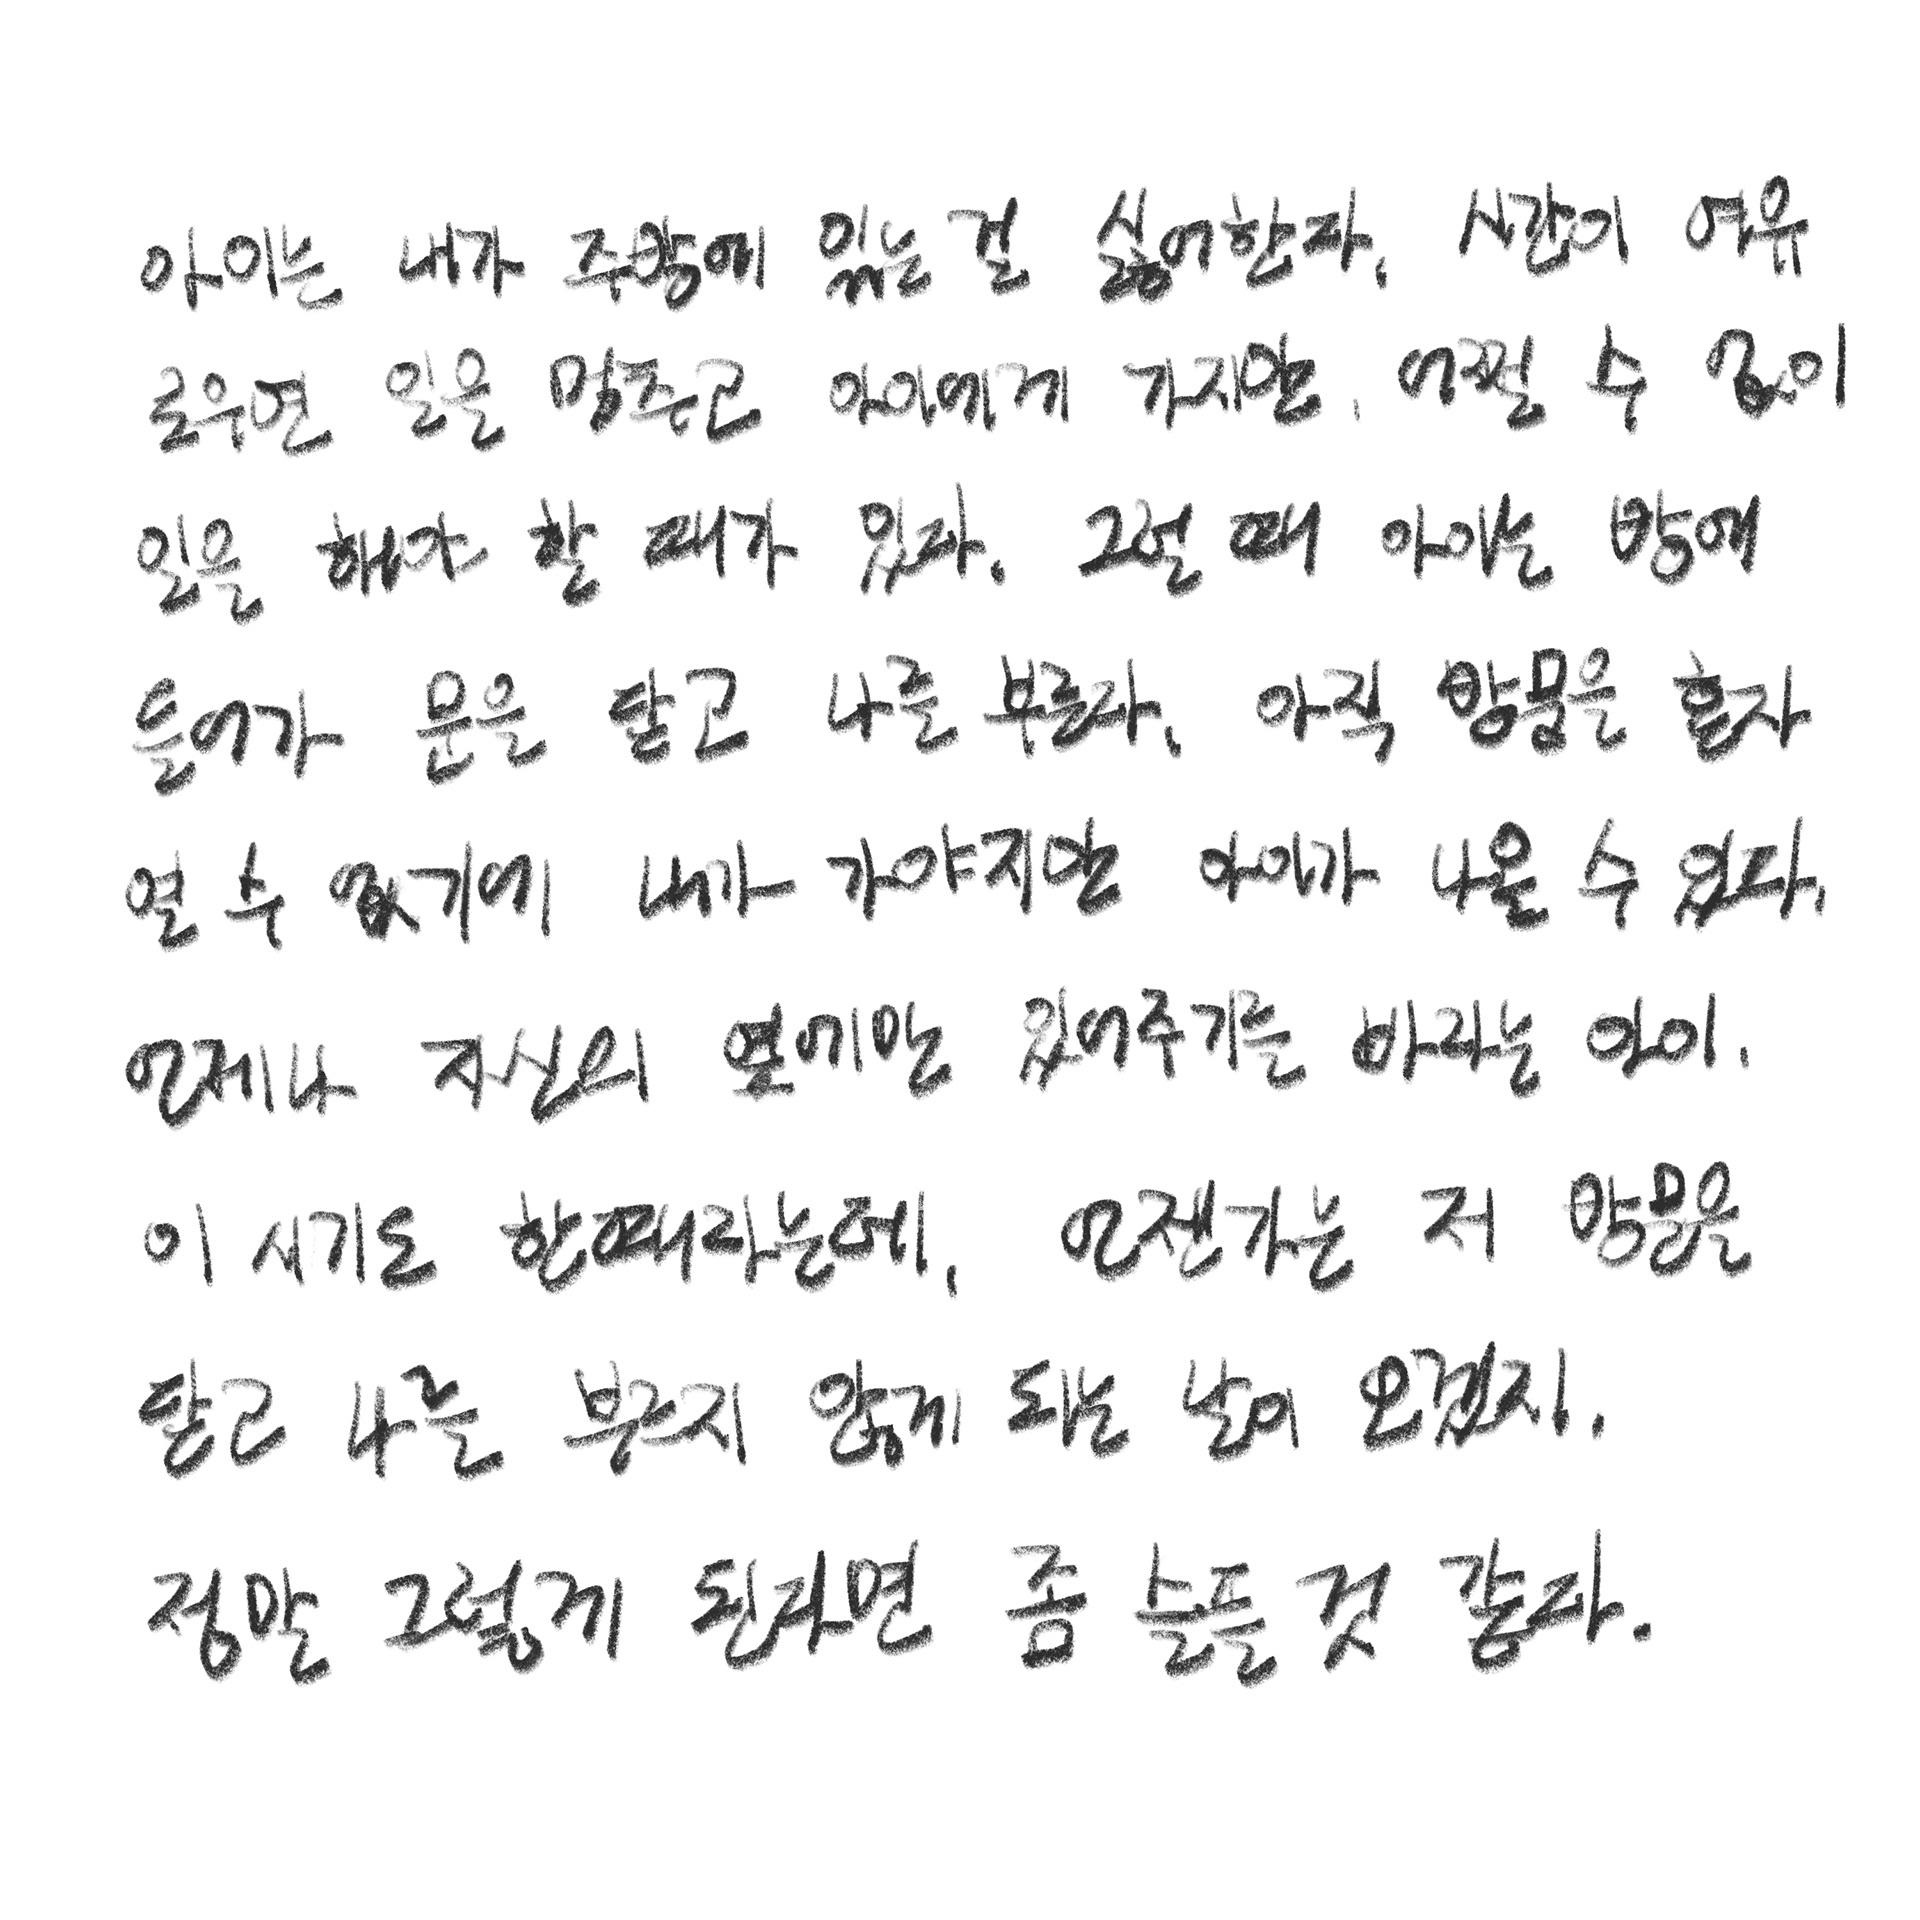 아이는 내가 주방에 있는 걸 싫어한다. 시간이 여유
로우면 일을 멈추고 아이에게 가지만, 어쩔 수 없이
일을 해야 할 때가 있다. 그럴 때 아이는 방에
들어가 문을 닫고 나를 부른다. 아직 방문을 혼자
열 수 없기에 내가 가야지만 아이가 나올 수 있다.
언제나 자신의 옆에만 있어주기를 바라는 아이.
이 시기도 한때라는데, 언젠가는 저 방문을
닫고 나를 부르지 않게 되는 날이 오겠지.
정말 그렇게 된다면 좀 슬플 것 같다.